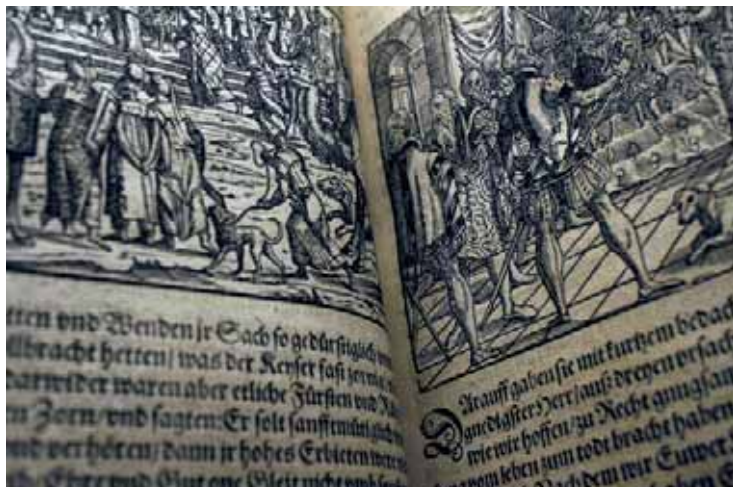 tten vnd Wenden jr Sach so gedürstiglich
llbracht hetten / was der Keyser fast zornig
darwider waren aber etliche Fürsten vnd
n Zorn / vnd sagten: Er solt sanfftmütiglich
nd verhören / dann jr hohes Erbieten were
Ehre vnd Gut one Gleit nicht
Darauff gaben sie mit kurtzem bedach
gnedigster Herr / auß dreyen vrsach
wie wir hoffen / zu Recht gnugsam
vom leben zum todt bracht haben
Nach dem wir Euwer